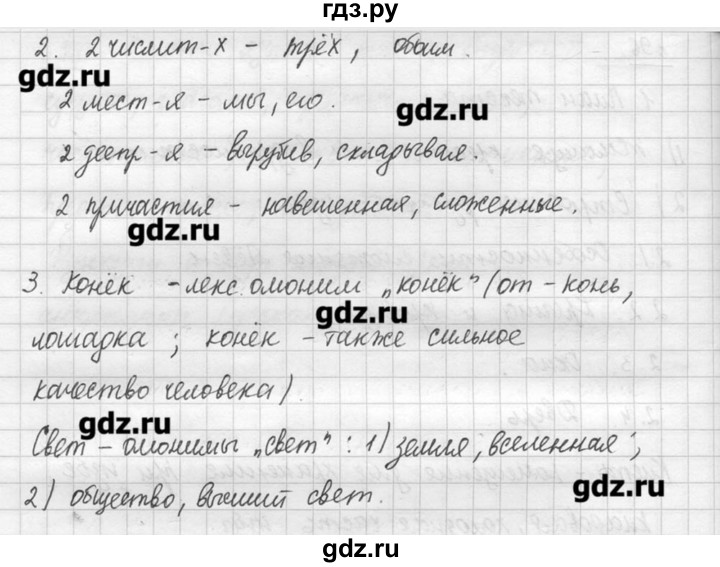 гдз.ру
2. 2 числит-х – трёх, обоим.
gdz.ru
2 мест-я – мы, его.
gdz.ru
2 деепр-я – вырубив, складывая.
2 причастия – навешенная, сложенные.
gdz.ru
3. Конёк – лекс. омоним „конёк“ (от – конь,
gdz.ru
лошадка; конёк – также сильное
качество человека).
gdz.ru
Свет – омонимы „свет“: 1) земля, вселенная;
2) общество, высший свет.
gdz.ru
gdz.ru